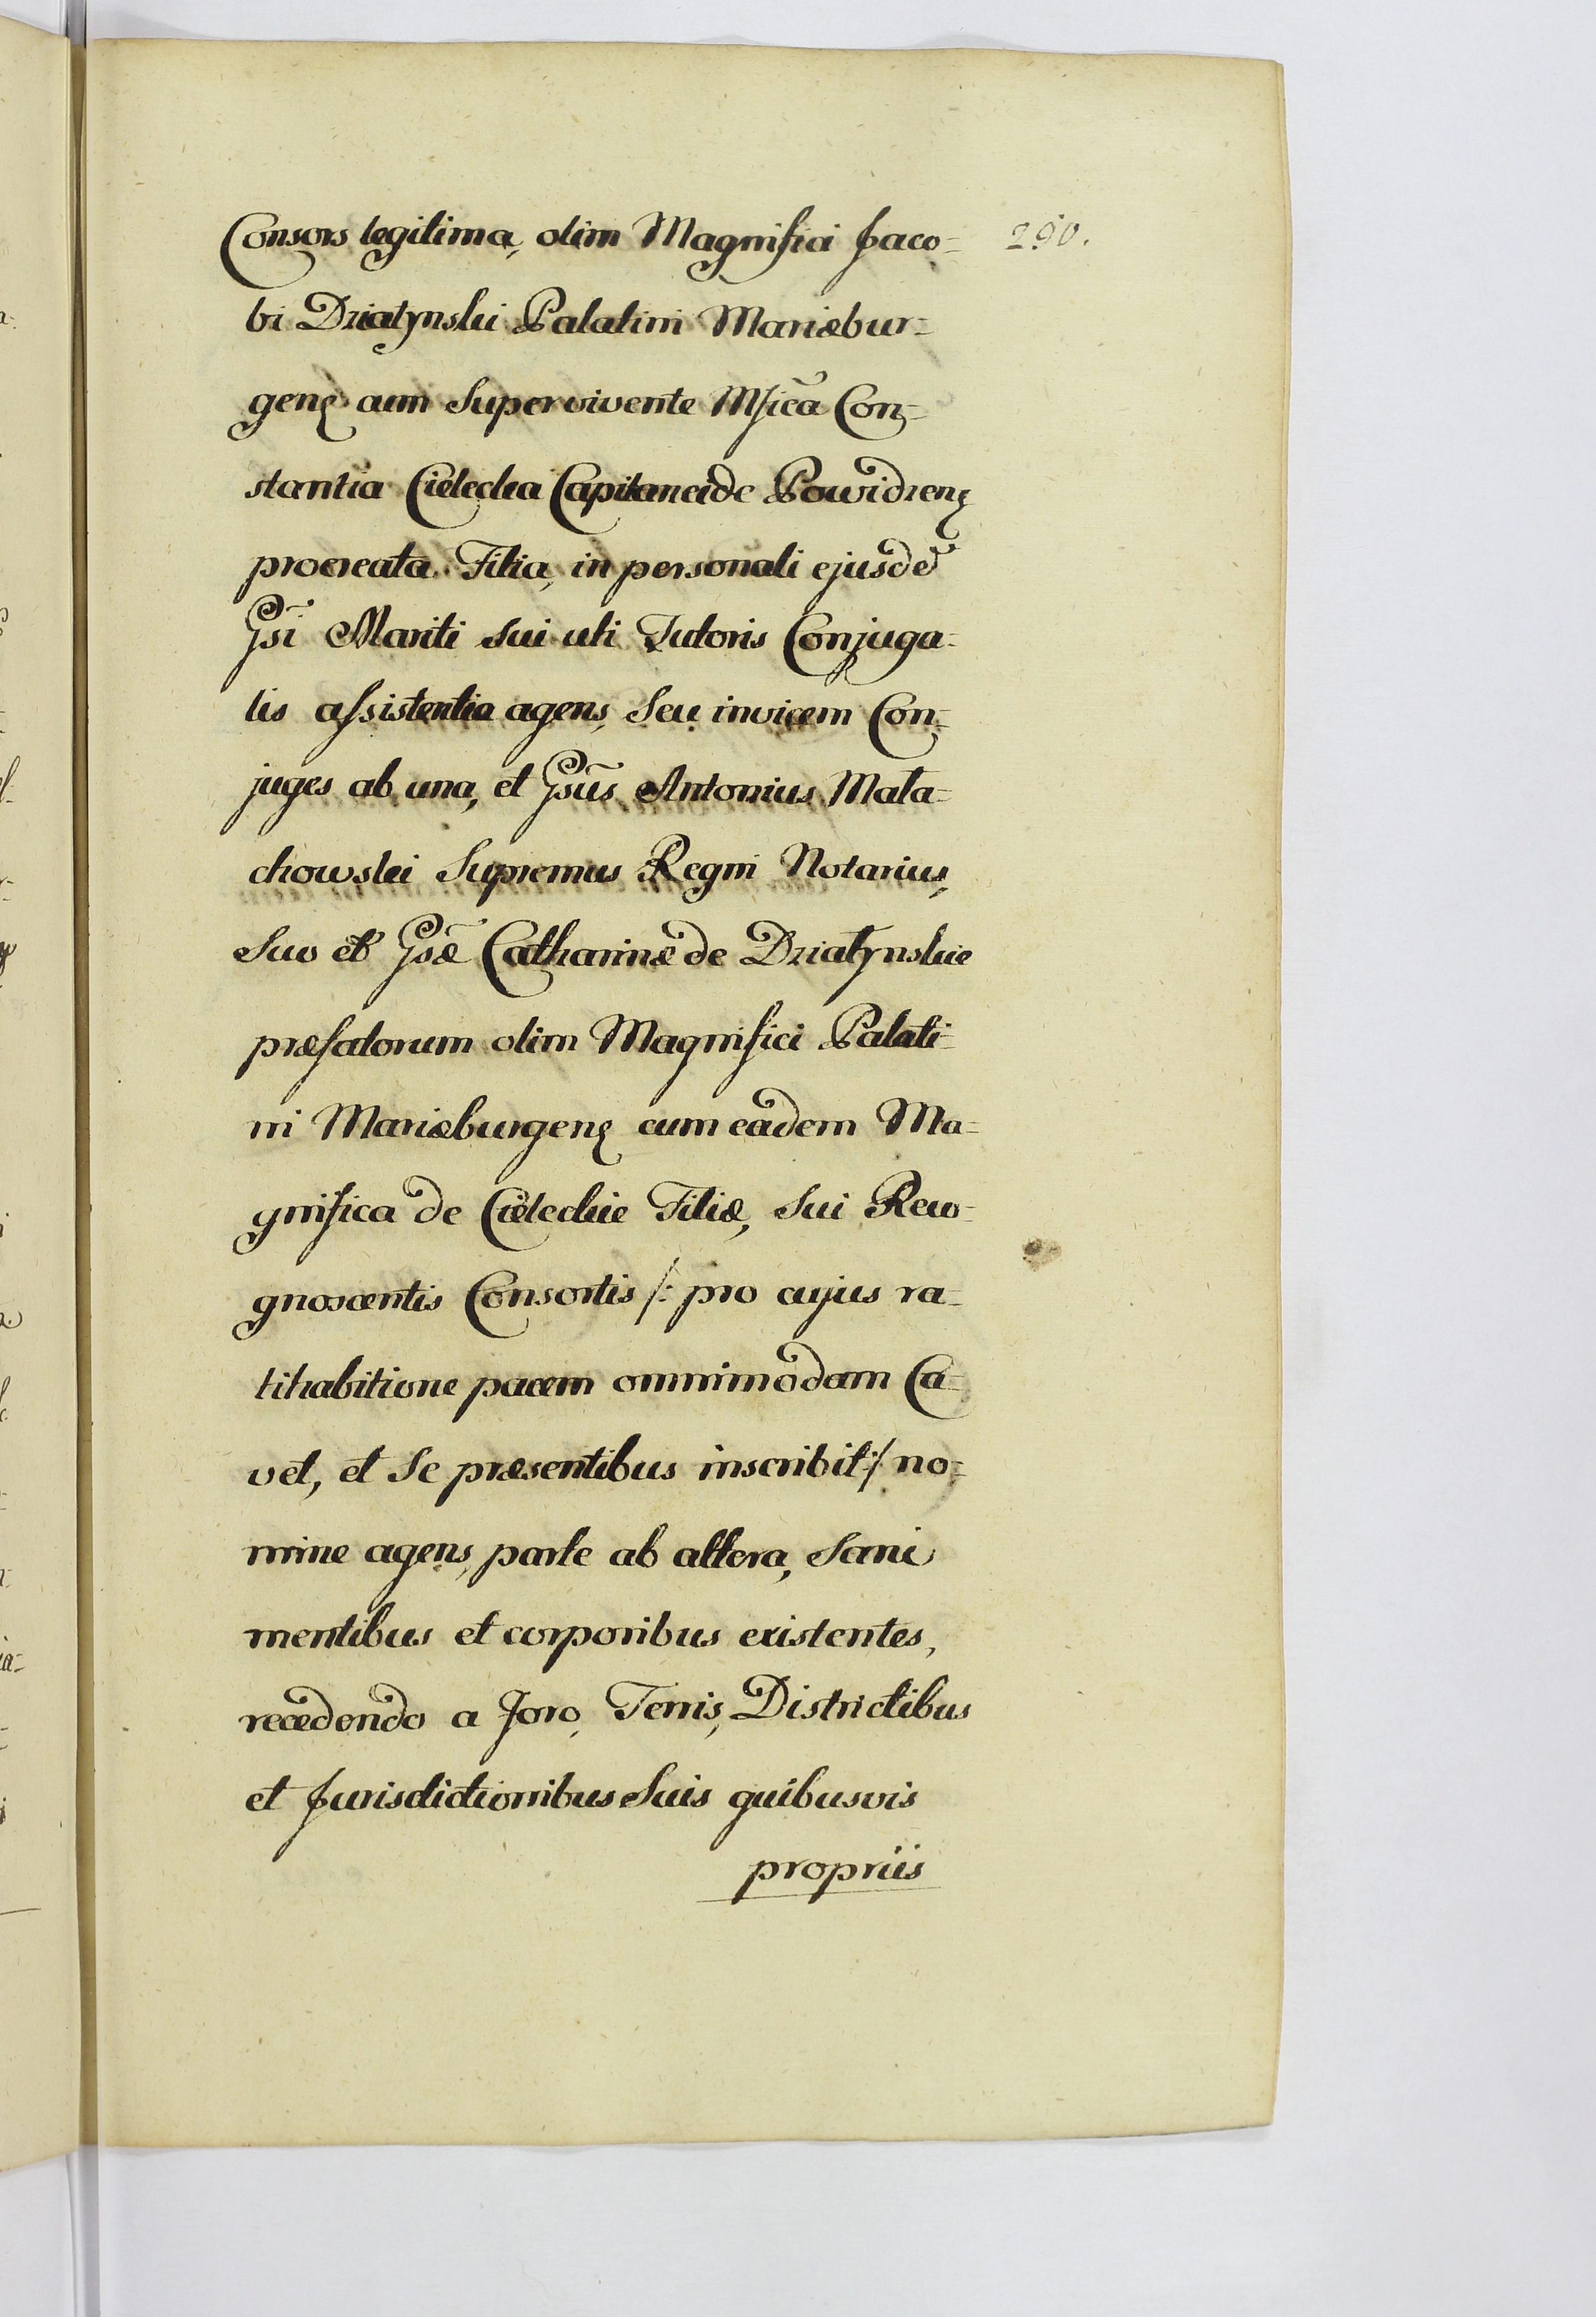 Consors legitima, olim Magnifici Jaco= 290.
bi Działynski Palatini Mariæbur=
genę cum Supervivente Mficã Con=
stantia Cielecka Capitaneide Powidzenę
procreata Filia, in personali ejusdẽ
Gsi Mariti sui uti Tutoris Conjuga=
lis assistentia agens, seu invicem Con=
juges ab una, et Gsũs Antonius Mała=
chowski Supremus Regni Notarius,
Suo et Gsæ Catharinæ de Działynskie
præfatorum olim Magnifici Palati=
ni Mariæburgenę cum eadem Ma=
gnifica de Cieleckie Filiæ, sui Reco=
gnoscentis Consortis /: pro cujus ra=
tihabitione pacem omnimodam Ca=
vet, et Se præsentibus inscribit :/ no=
mine agens, parte ab altera, Sani
mentibus et corporibus existentes,
recedendo a Foro, Terris, Districtibus
et Jurisdictionibus Suis quibusvis
propriis